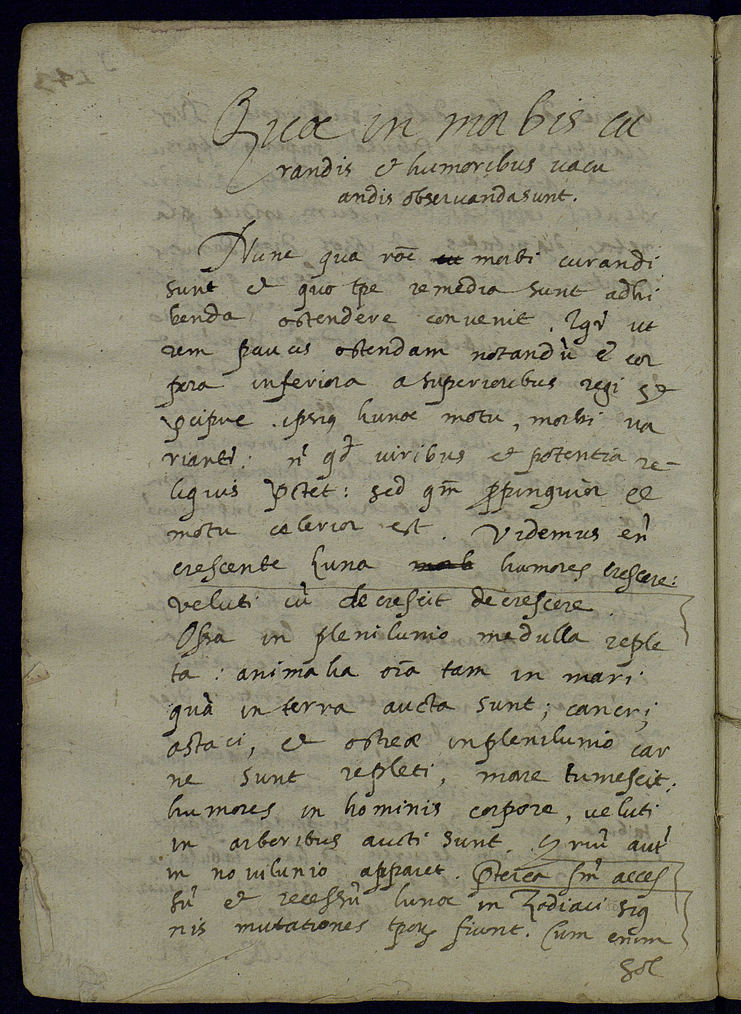 Quæ in morbis cu
randis et humoribus vacu
andis observanda sunt.
Nunc qua roe morbi curandi
sunt et quo tpe remedia sunt adhi
benda ostendere convenit. Igr ut
rem paucis ostendam notandu e cor
pora inferiora a superioribus regi et
pcipue ipsius lunæ motu, morbi va
riantr: n qd viribus et potentia re-
liquis pstet: sed qm propinquior et
motu celerior est. Videmus en
crescente Luna humores crescere:
veluti cu decrescit decrescere.
Ossa in plenilunio medulla reple
ta: animalia oia tam in mari
qua in terra aucta sunt; cancri,
astaci, et ostreæ in plenilunio car
ne sunt repleti, mare tumescit;
humores in hominis corpore, veluti
in arboribus aucti sunt. aut
in novilunio apparet. Pterea sm acces
su et recessu lunæ in Zodiaci sig
nis mutationes tporu fiunt. Cum enim
Sol